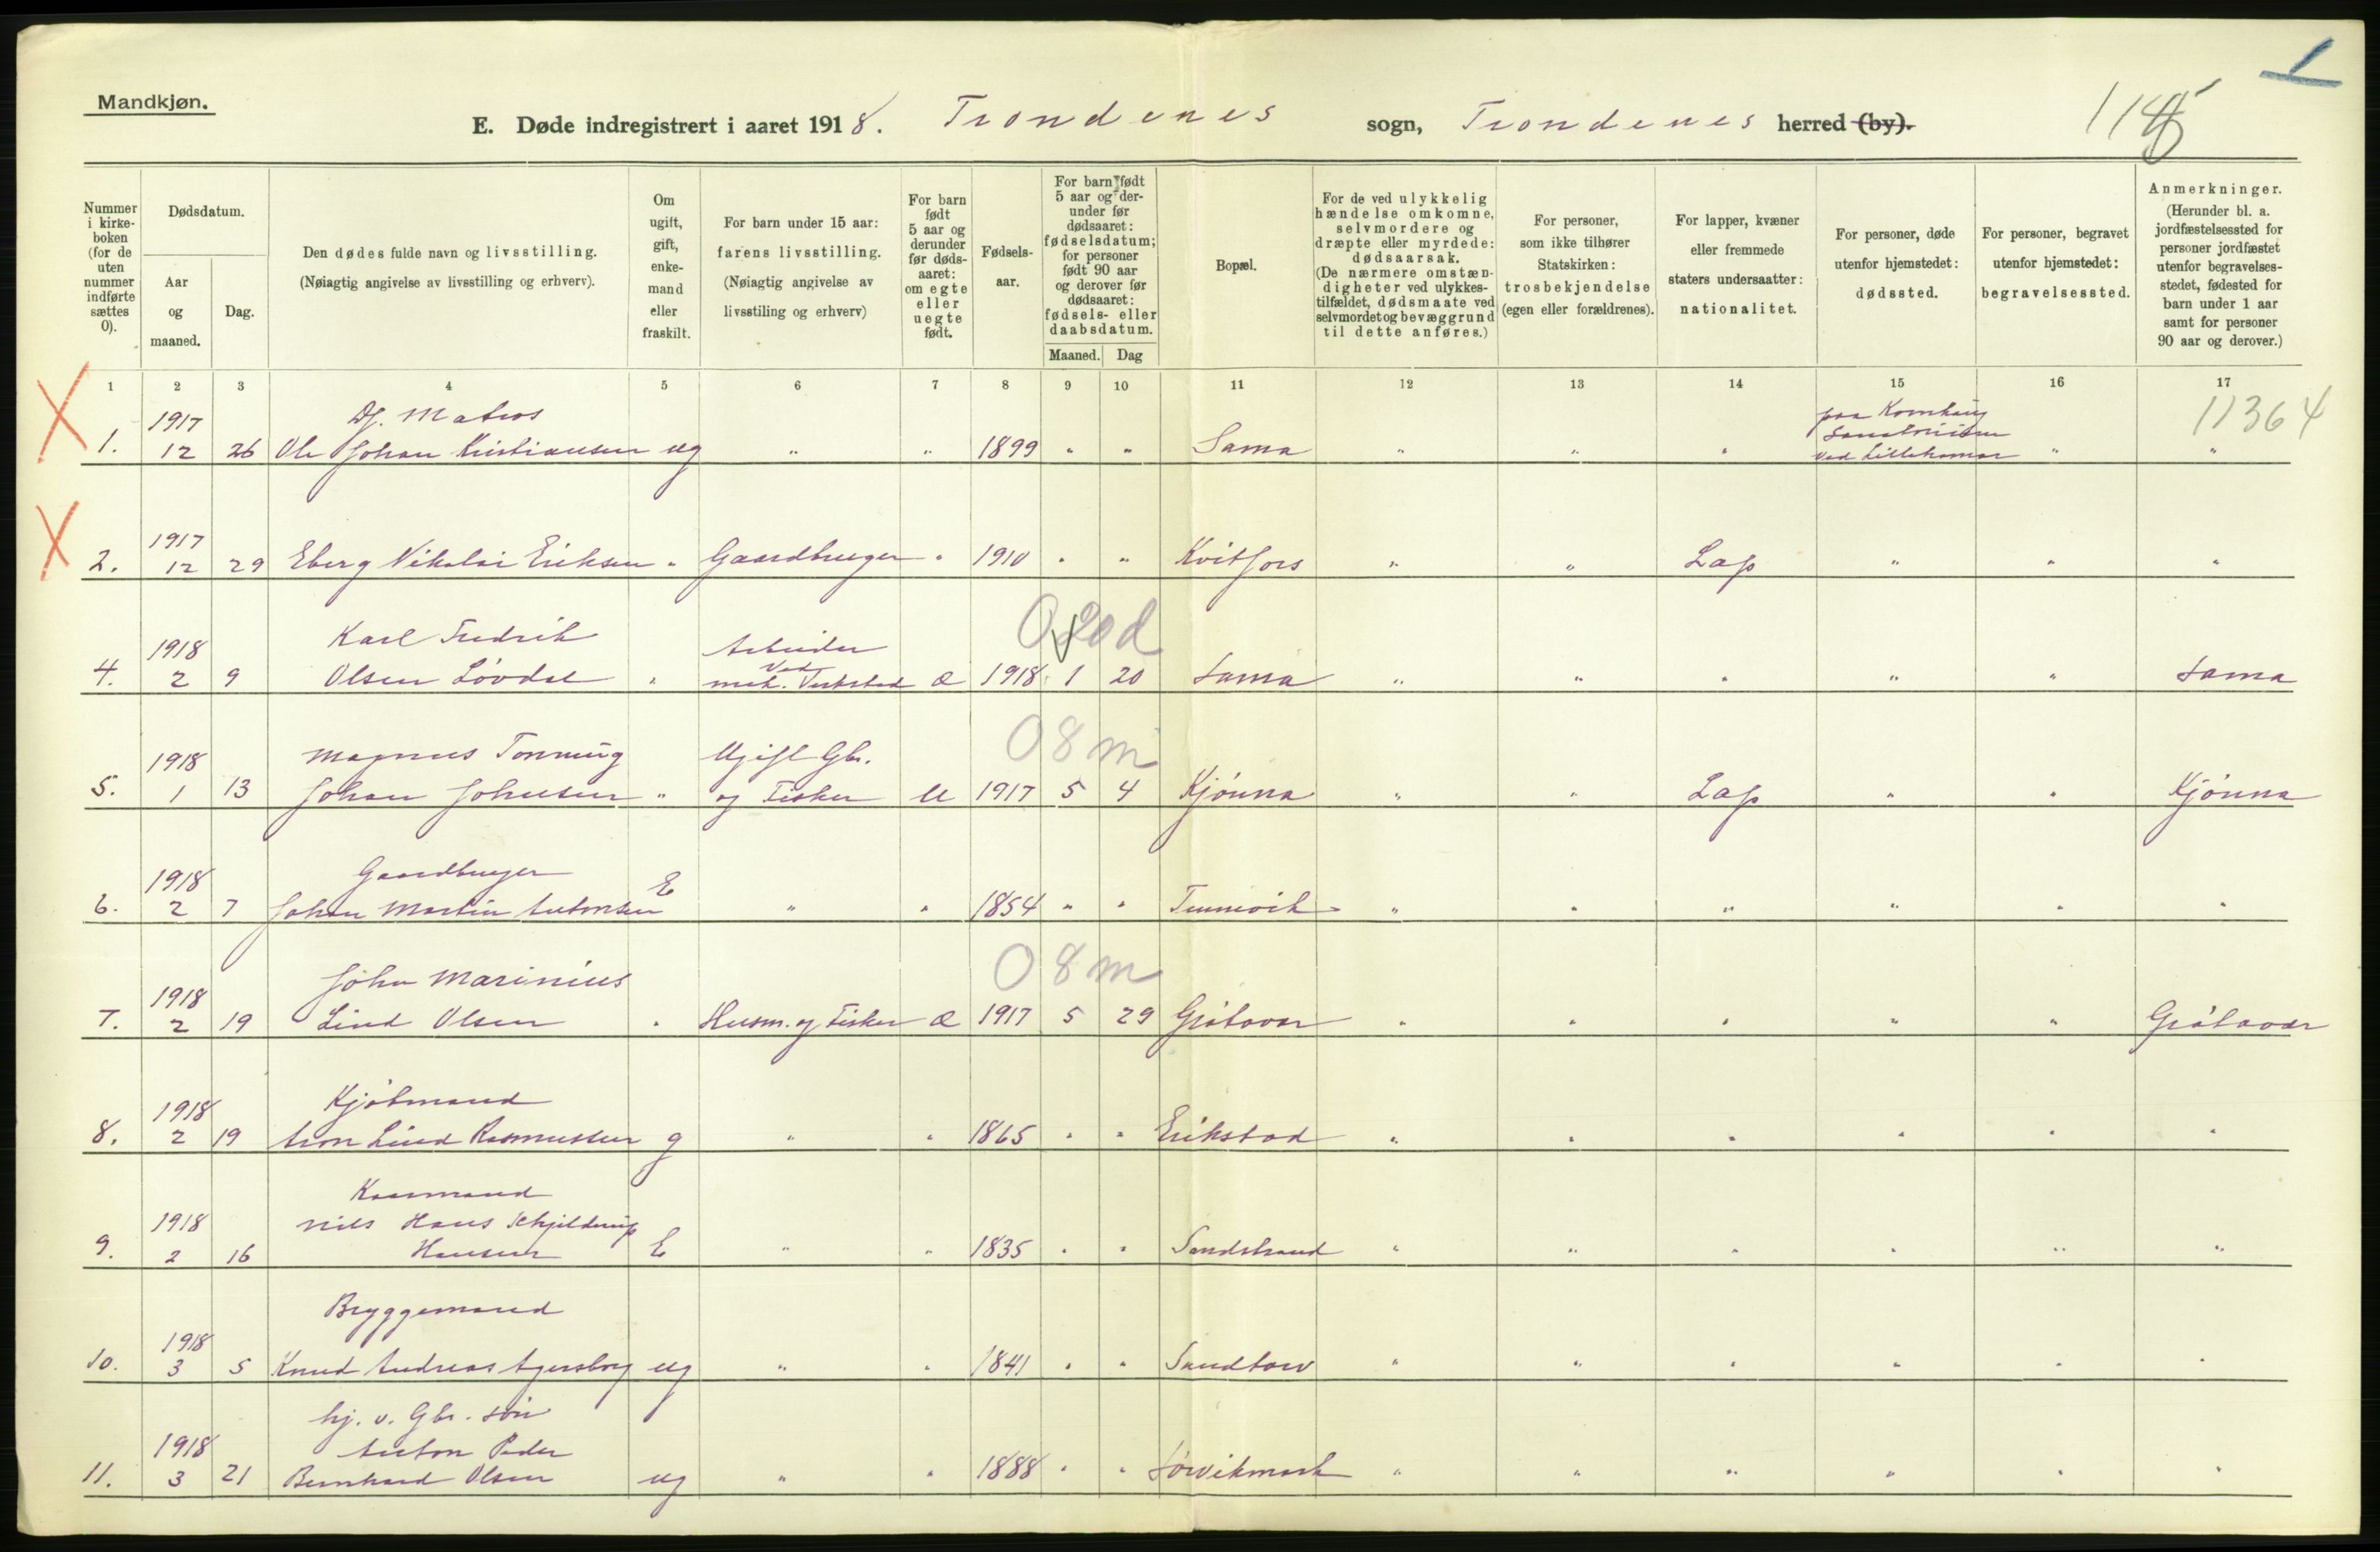 Mandkjøn.
E. Døde indregistrert i aaret 1918. Trondenes sogn, Trondenes herred (by).
Nummer i kirkeboken (for de uten nummer indførte sættes 0).
Dødsdatum.
Aar og maaned.
Dag.
Den dødes fulde navn og livsstilling.
(Nøiagtig angivelse av livsstilling og erhverv).
Om ugift, gift, enkemand eller fraskilt.
For barn under 15 aar: farens livsstilling.
(Nøiagtig angivelse av livsstiling og erhverv)
For barn født 5 aar og derunder før dødsaaret: om egte eller uegte født.
Fødselsaar.
For barn født 5 aar og derunder før dødsaaret: fødselsdatum; for personer født 90 aar og derover før dødsaaret: fødsels- eller daabsdatum.
Maaned. Dag
Bopæl.
For de ved ulykkelig hændelse omkomne, selvmordere og dræpte eller myrdede: dødsaarsak.
(De nærmere omstændigheter ved ulykkestilfældet, dødsmaate ved selvmordet og bevæggrund til dette anføres.)
For personer, som ikke tilhører Statskirken: trosbekjendelse (egen eller forældrenes).
For lapper, kvæner eller fremmede staters undersaatter: nationalitet.
For personer, døde utenfor hjemstedet: dødssted.
For personer, begravet utenfor hjemstedet: begravelsessted.
Anmerkninger.
(Herunder bl. a. jordfæstelsessted for personer jordfæstet utenfor begravelsesstedet, fødested for barn under 1 aar samt for personer 90 aar og derover.)
1 2 3 4 5 6 7 8 9 10 11 12 13 14 15 16 17
11364
1917 Matros paa Kornhaug
Sanatorium
1. 12 26 Ole Johan Kristiansen ug " " 1899 " " Sama " " " ved Lillehamar " "
1917
2. 12 29 Eberg Nikolai Eriksen " Gaardbruger " 1910 " " Kvitfors " " Lap " " "
0 20 d
1918 Karl Fredrik Arbeider
ved
4. 2 9 Olsen Løvdal " mek. Verksted Æ 1918 1 20 Sama " " " " " Sama
0 8 m
1918 Magnus Tonning Ugift Gbr.
5. 1 13 Johan Johnsen " og Fisker U 1917 5 4 Kjønna " " Lap " " Kjønna
1918 Gaardbruger
6. 2 7 Johan Martin Antonsen E " " 1854 " " Tennevik " " " " " "
0 8 m
1918 John Marinius
7. 2 19 Lind Olsen " Husm. og Fisker Æ 1917 5 29 Grøtavær " " " " " Grøtavær
1918 Kjøbmand
8. 2 19 Aron Lind Rasmussen g " " 1865 " " Erikstad " " " " " "
Kaarmand
1918 Nils Hans Schjelderup
9. 2 16 Hansen E " " 1835 " " Sandstrand " " " " " "
1918 Bryggemand
10. 3 5 Knud Andreas Agersborg ug " " 1841 " " Sandtorv " " " " " "
hj. v. Gbr. søn
1918 Anton Peder
11. 3 21 Bernhard Olsen ug " " 1888 " " Sørvikmark " " " " " "